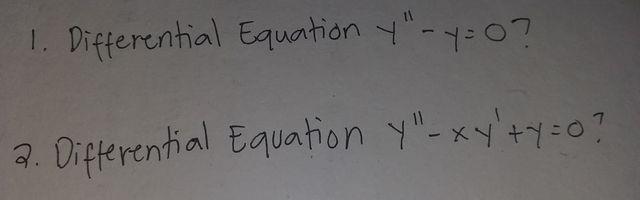 1. Differential Equation y" - y = 0?
2. Differential Equation y" - xy' + y = 0?